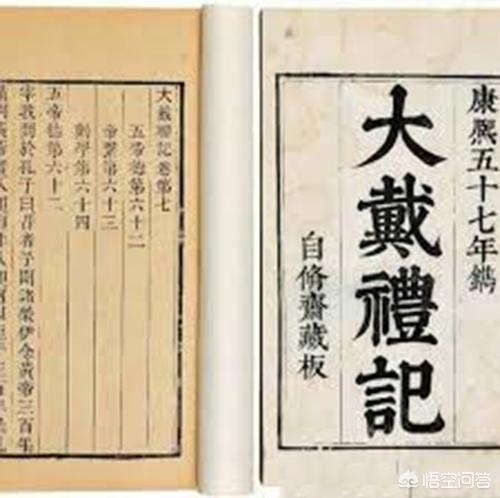 康熙五十七年鐫
大戴禮記
自脩齋藏板
大戴禮記卷第七
五帝德第六十二
帝繫第六十三
勸學第六十四
五帝德第六十二
宰我問於孔子曰昔者予聞諸榮伊令黃帝三百年
悟空问答